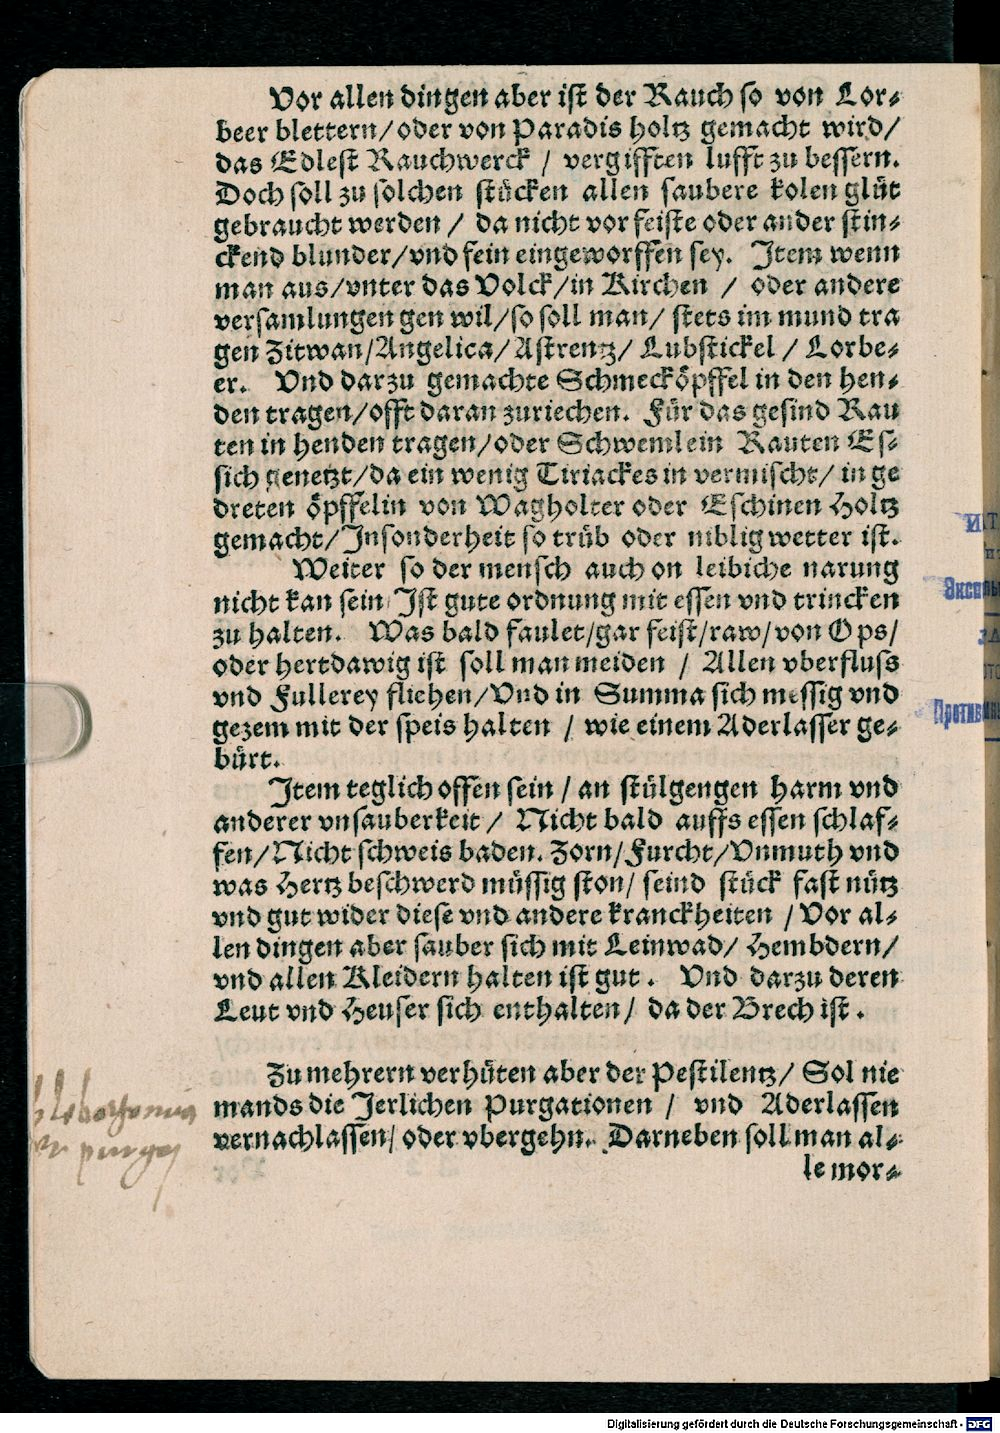 Vor allen dingen aber ist der Rauch so von Lor⸗
beer blettern/ oder von Paradis holtz gemacht wird/
das Edlest Rauchwerck / vergifften lufft zu bessern.
Doch soll zu solchen stücken allen saubere kolen glüt
gebraucht werden / da nicht vor feiste oder ander stin⸗
ckend blunder/ vnd fein eingeworffen sey. Item wenn
man aus/ vnter das Volck/ in Kirchen / oder andere
versamlungen gen wil/ so soll man/ stets im mund tra
gen Zitwan/ Angelica/ Astrentz/ Lubstickel / Lorbe⸗
er. Vnd darzu gemachte Schmecköpffel in den hen⸗
den tragen/ offt daran zuriechen. Für das gesind Rau
ten in henden tragen/ oder Schwemlein Rauten Es⸗
sich genetzt/ da ein wenig Tiriackes in vermischt/ in ge
dreten öpffelin von Wagholter oder Eschinen Holtz
gemacht/ Insonderheit so trüb oder niblig wetter ist.
Weiter so der mensch auch on leibiche narung
nicht kan sein/ Ist gute ordnung mit essen vnd trincken
zu halten. Was bald faulet/ gar feist/ raw/ von Ops/
oder hertdawig ist soll man meiden / Allen vberfluss
vnd Fullerey fliehen/ Vnd in Summa sich messig vnd
gezem mit der speis halten / wie einem Aderlasser ge⸗
bürt.
Item teglich offen sein / an stülgengen harm vnd
anderer vnsauberkeit / Nicht bald auffs essen schlaf⸗
fen/ Nicht schweis baden. Zorn/ Furcht/ Vnmuth vnd
was Hertz beschwerd müssig ston/ seind stück fast nütz
vnd gut wider diese vnd andere kranckheiten / Vor al⸗
len dingen aber sauber sich mit Leinwad/ Hembdern/
vnd allen Kleidern halten ist gut. Vnd darzu deren
Leut vnd Heuser sich enthalten/ da der Brech ist.
Zu mehrern verhüten aber der Pestilentz/ Sol nie
mands die Jerlichen Purgationen / vnd Aderlassen
vernachlassen/ oder vbergehn. Darneben soll man al⸗
le mor⸗
Digitalisierung gefördert durch die Deutsche Forschungsgemeinschaft - DFG